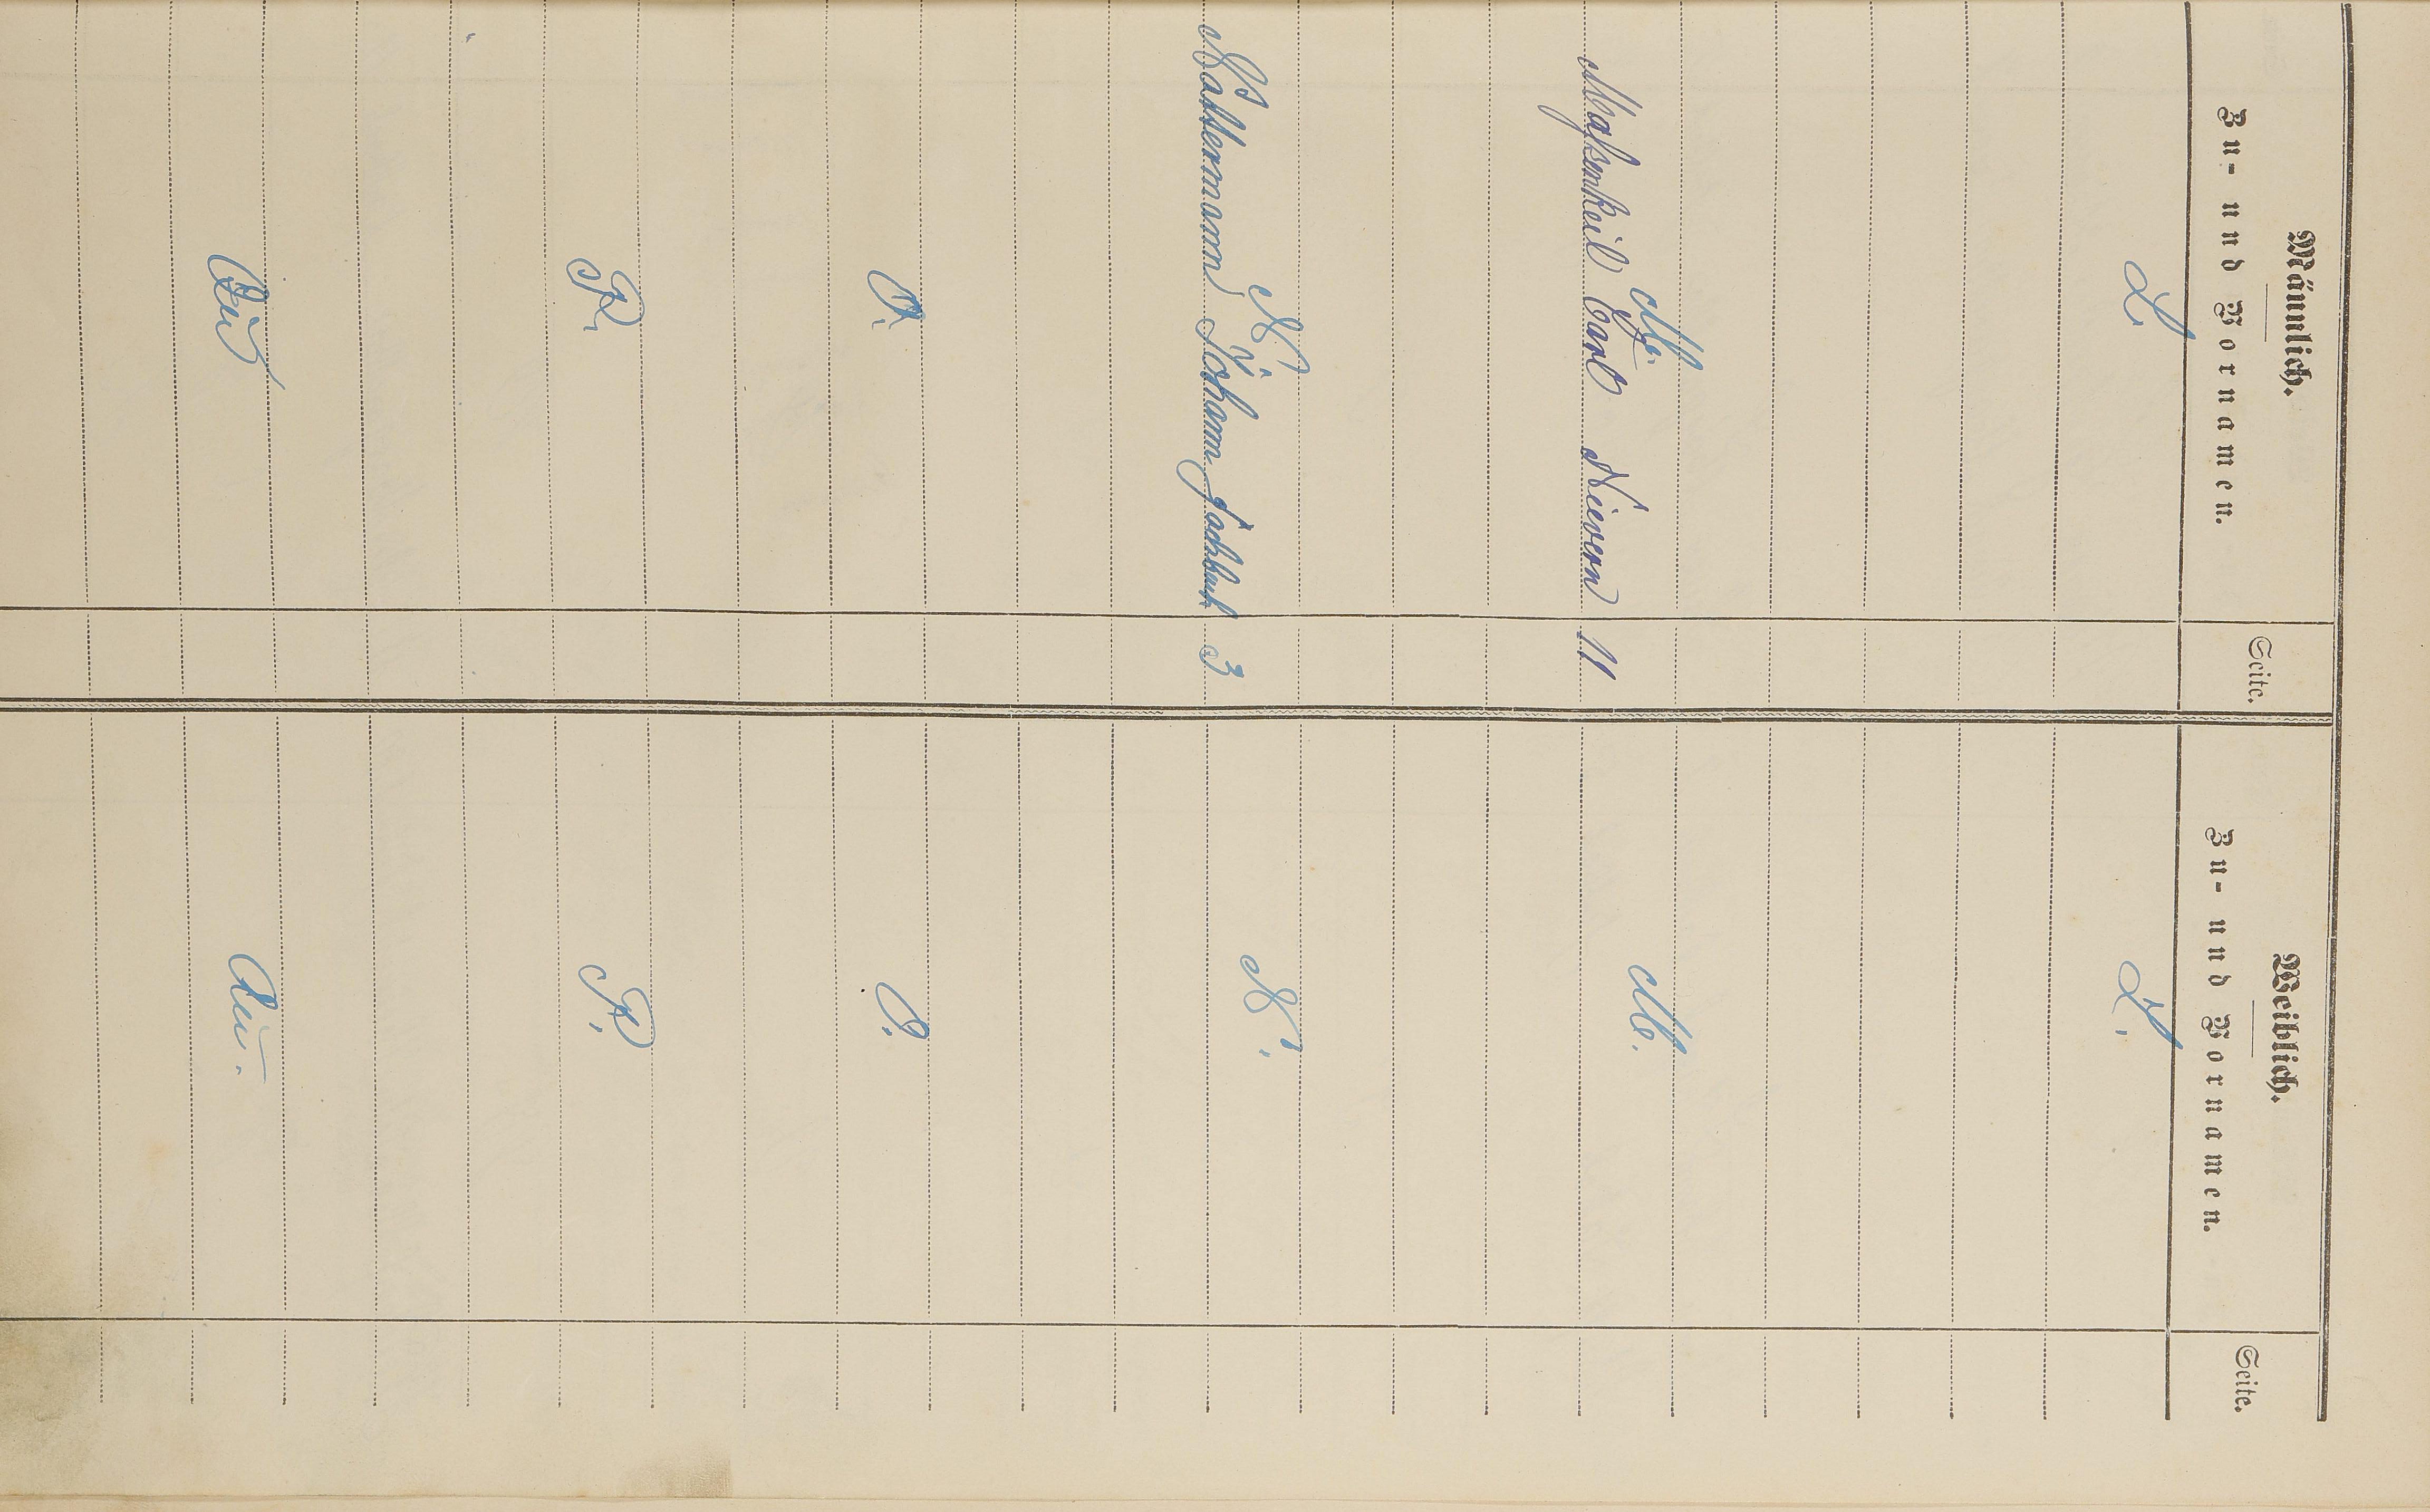 Männlich. Weiblich.
Zu- und Vornamen. Seite. Zu- und Vornamen. Seite.
L. L.
M. M.
Maßenkeil Carl Nievern 11
N. N.
Nattermann Johann 3
O. O.
P. P.
Qu Qu.